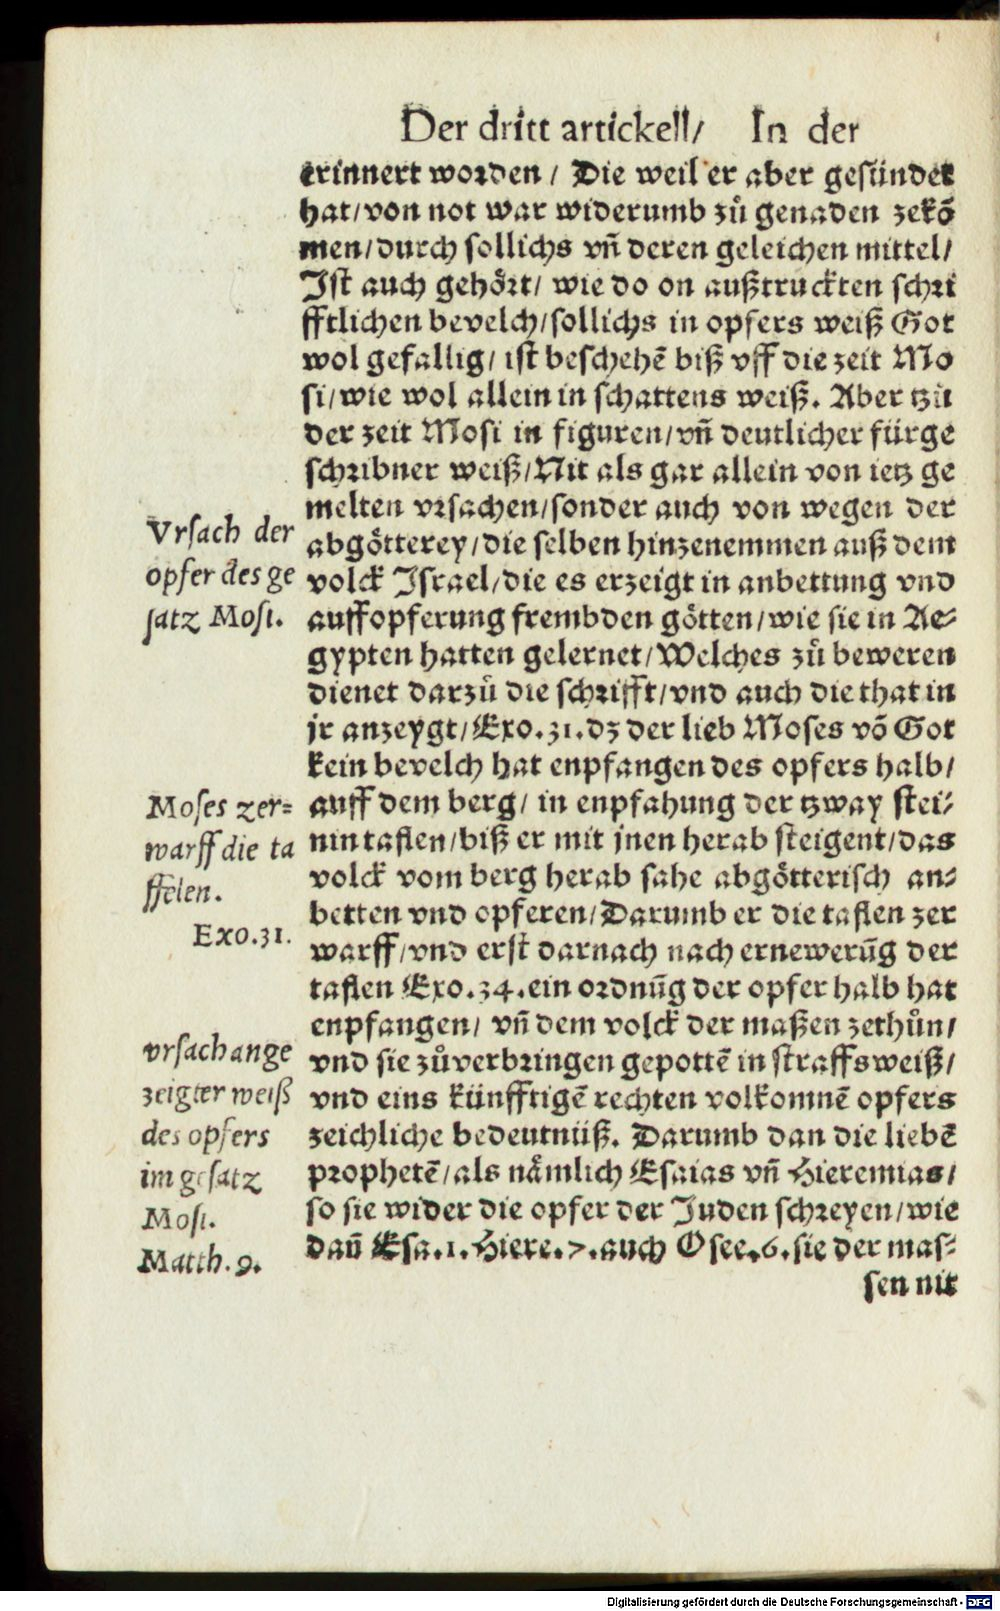 Der dritt artickell/ In der
erinnert worden / Die weil er aber gesündet
hat/von not war widerumb zů genaden zekõ
men/durch sollichs vñ deren geleichen mittel/
Ist auch gehört/ wie do on außtruckten schri
fftlichen bevelch/sollichs in opfers weiß Got
wol gefallig/ ist beschehẽ biß vff die zeit Mo
si/wie wol allein in schattens weiß. Aber tzů
der zeit Mosi in figuren/vñ deutlicher fürge
schribner weiß/Nit als gar allein von ietz ge
melten vrsachen/sonder auch von wegen der
Vrsach der
opfer des ge
satz Mosi.
abgötterey/die selben hinzenemmen auß dem
volck Israel/die es erzeigt in anbettung vnd
auffopferung frembden götten/wie sie in Ae-
gypten hatten gelernet/Welches zů beweren
dienet darzů die schrifft/vnd auch die that in
jr anzeygt/Exo.31.dz der lieb Moses võ Got
kein bevelch hat enpfangen des opfers halb/
Moses zer=
warff die ta
ffelen.
Exo.31.
auff dem berg/ in enpfahung der tzway stei-
nin taflen/biß er mit jnen herab steigent/das
volck vom berg herab sahe abgötterisch an-
betten vnd opferen/Darumb er die taflen zer
warff/vnd erst darnach nach ernewerũg der
taflen Exo.34.ein ordnũg der opfer halb hat
enpfangen/ vñ dem volck der maßen zethůn/
vrsach ange
zeigter weiß
des opfers
im gesatz
Mosi.
Matth.9.
vnd sie zůverbringen gepottẽ in straffsweiß/
vnd eins künfftigẽ rechten volkomnẽ opfers
zeichliche bedeutnüß. Darumb dan die liebẽ
prophetẽ/als nämlich Esaias vñ Hieremias/
so sie wider die opfer der Juden schreyen/wie
dañ Esa.1.Hiere.7.auch Osee.6.sie der mas-
sen nit
Digitalisierung gefördert durch die Deutsche Forschungsgemeinschaft - DFG